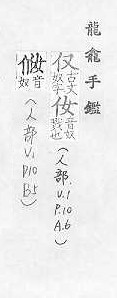 龍龕手鑑
仅
古文
奴字
音奴
(人部.V.1
P.10
A.6)
音
奴
(人部
V.1
P10
B5)